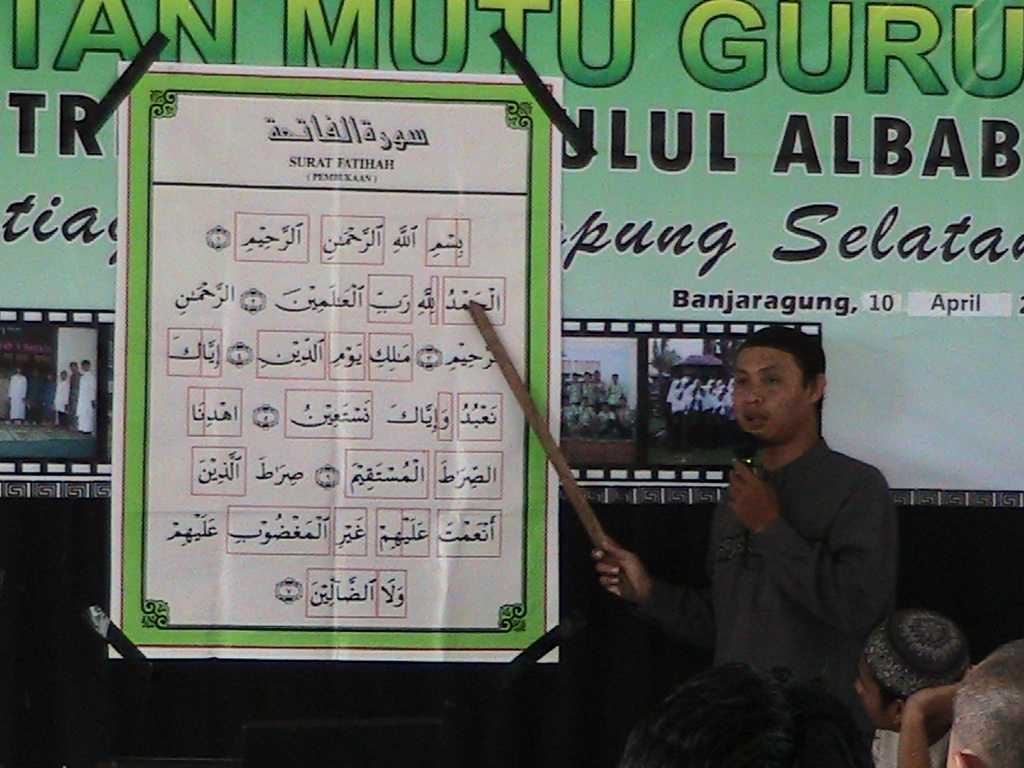 MUTU GURU
ULUL ALBAB
Selatan
Banjaragung, 10 April
سورة الفاتحة
SURAT FATIHAH
( PEMBUKAAN )
بِسْمِ اللَّهِ الرَّحْمَٰنِ الرَّحِيْمِ ١
الْحَمْدُ لِلَّهِ رَبِّ الْعَٰلَمِيْنَ ٢ الرَّحْمَٰنِ
الرَّحِيْمِ ٣ مَٰلِكِ يَوْمِ الدِّيْنِ ٤ إِيَّاكَ
نَعْبُدُ وَإِيَّاكَ نَسْتَعِيْنُ ٥ اهْدِنَا
الصِّرَاطَ الْمُسْتَقِيْمَ ٦ صِرَاطَ الَّذِيْنَ
أَنْعَمْتَ عَلَيْهِمْ غَيْرِ الْمَغْضُوْبِ عَلَيْهِمْ
وَلَا الضَّآلِّيْنَ ٧